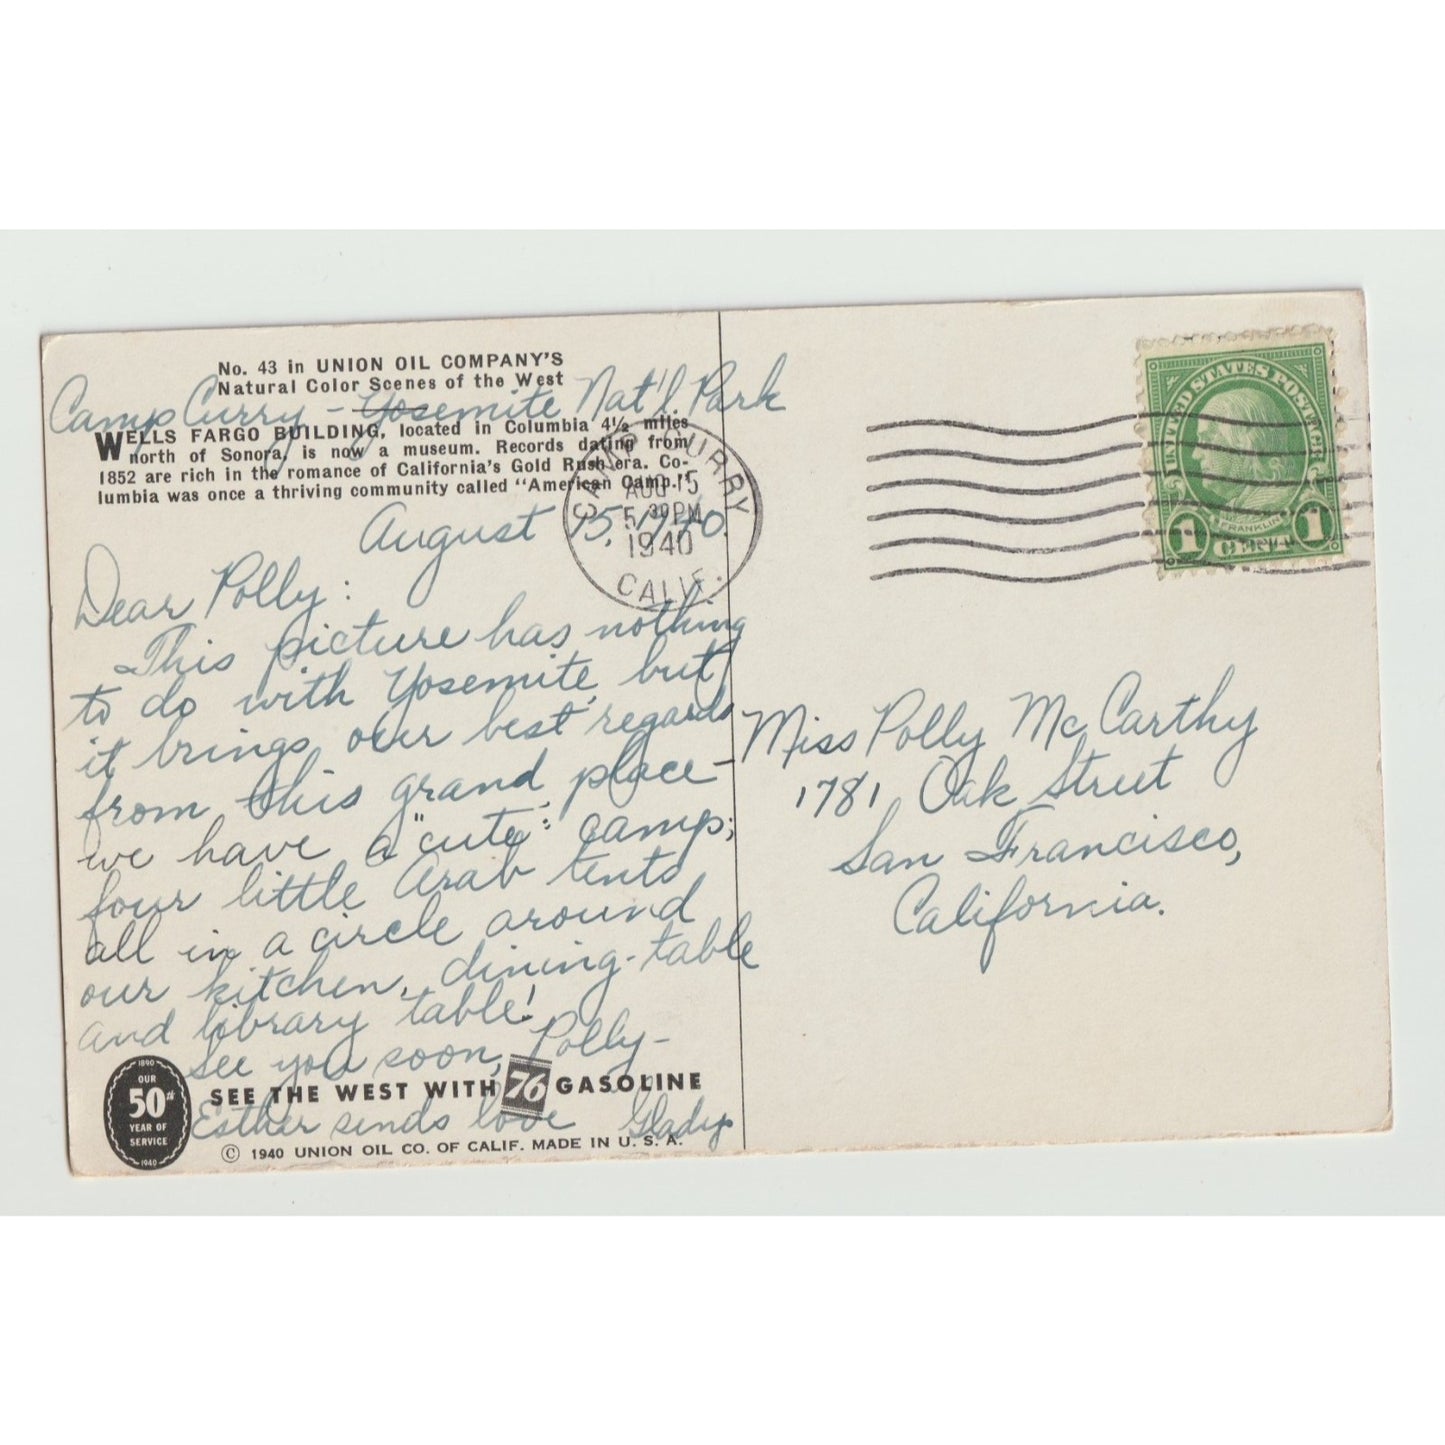 No. 43 in UNION OIL COMPANY'S
Natural Color Scenes of the West
Camp Curry - Yosemite Nat'l Park
WELLS FARGO BUILDING, located in Columbia 4½ miles
north of Sonora, is now a museum. Records dating from
1852 are rich in the romance of California's Gold Rush era. Co-
lumbia was once a thriving community called "American Camp."
August 15, 1940.
Dear Polly:
This picture has nothing
to do with Yosemite, but
it brings our best regards
from this grand place-
we have a "cute" camp;
four little Arab tents
all in a circle around
our kitchen, dining-table
and library table!
See you soon, Polly-
SEE THE WEST WITH 76 GASOLINE
Esther sends love Gladys
© 1940 UNION OIL CO. OF CALIF. MADE IN U. S. A.
1890
OUR
50th
YEAR OF
SERVICE
1940
CAMP CURRY
AUG 15
5 30 PM
1940
CALIF.
UNITED STATES POSTAGE
FRANKLIN
1 CENT 1
Miss Polly McCarthy
1781 Oak Street
San Francisco,
California.